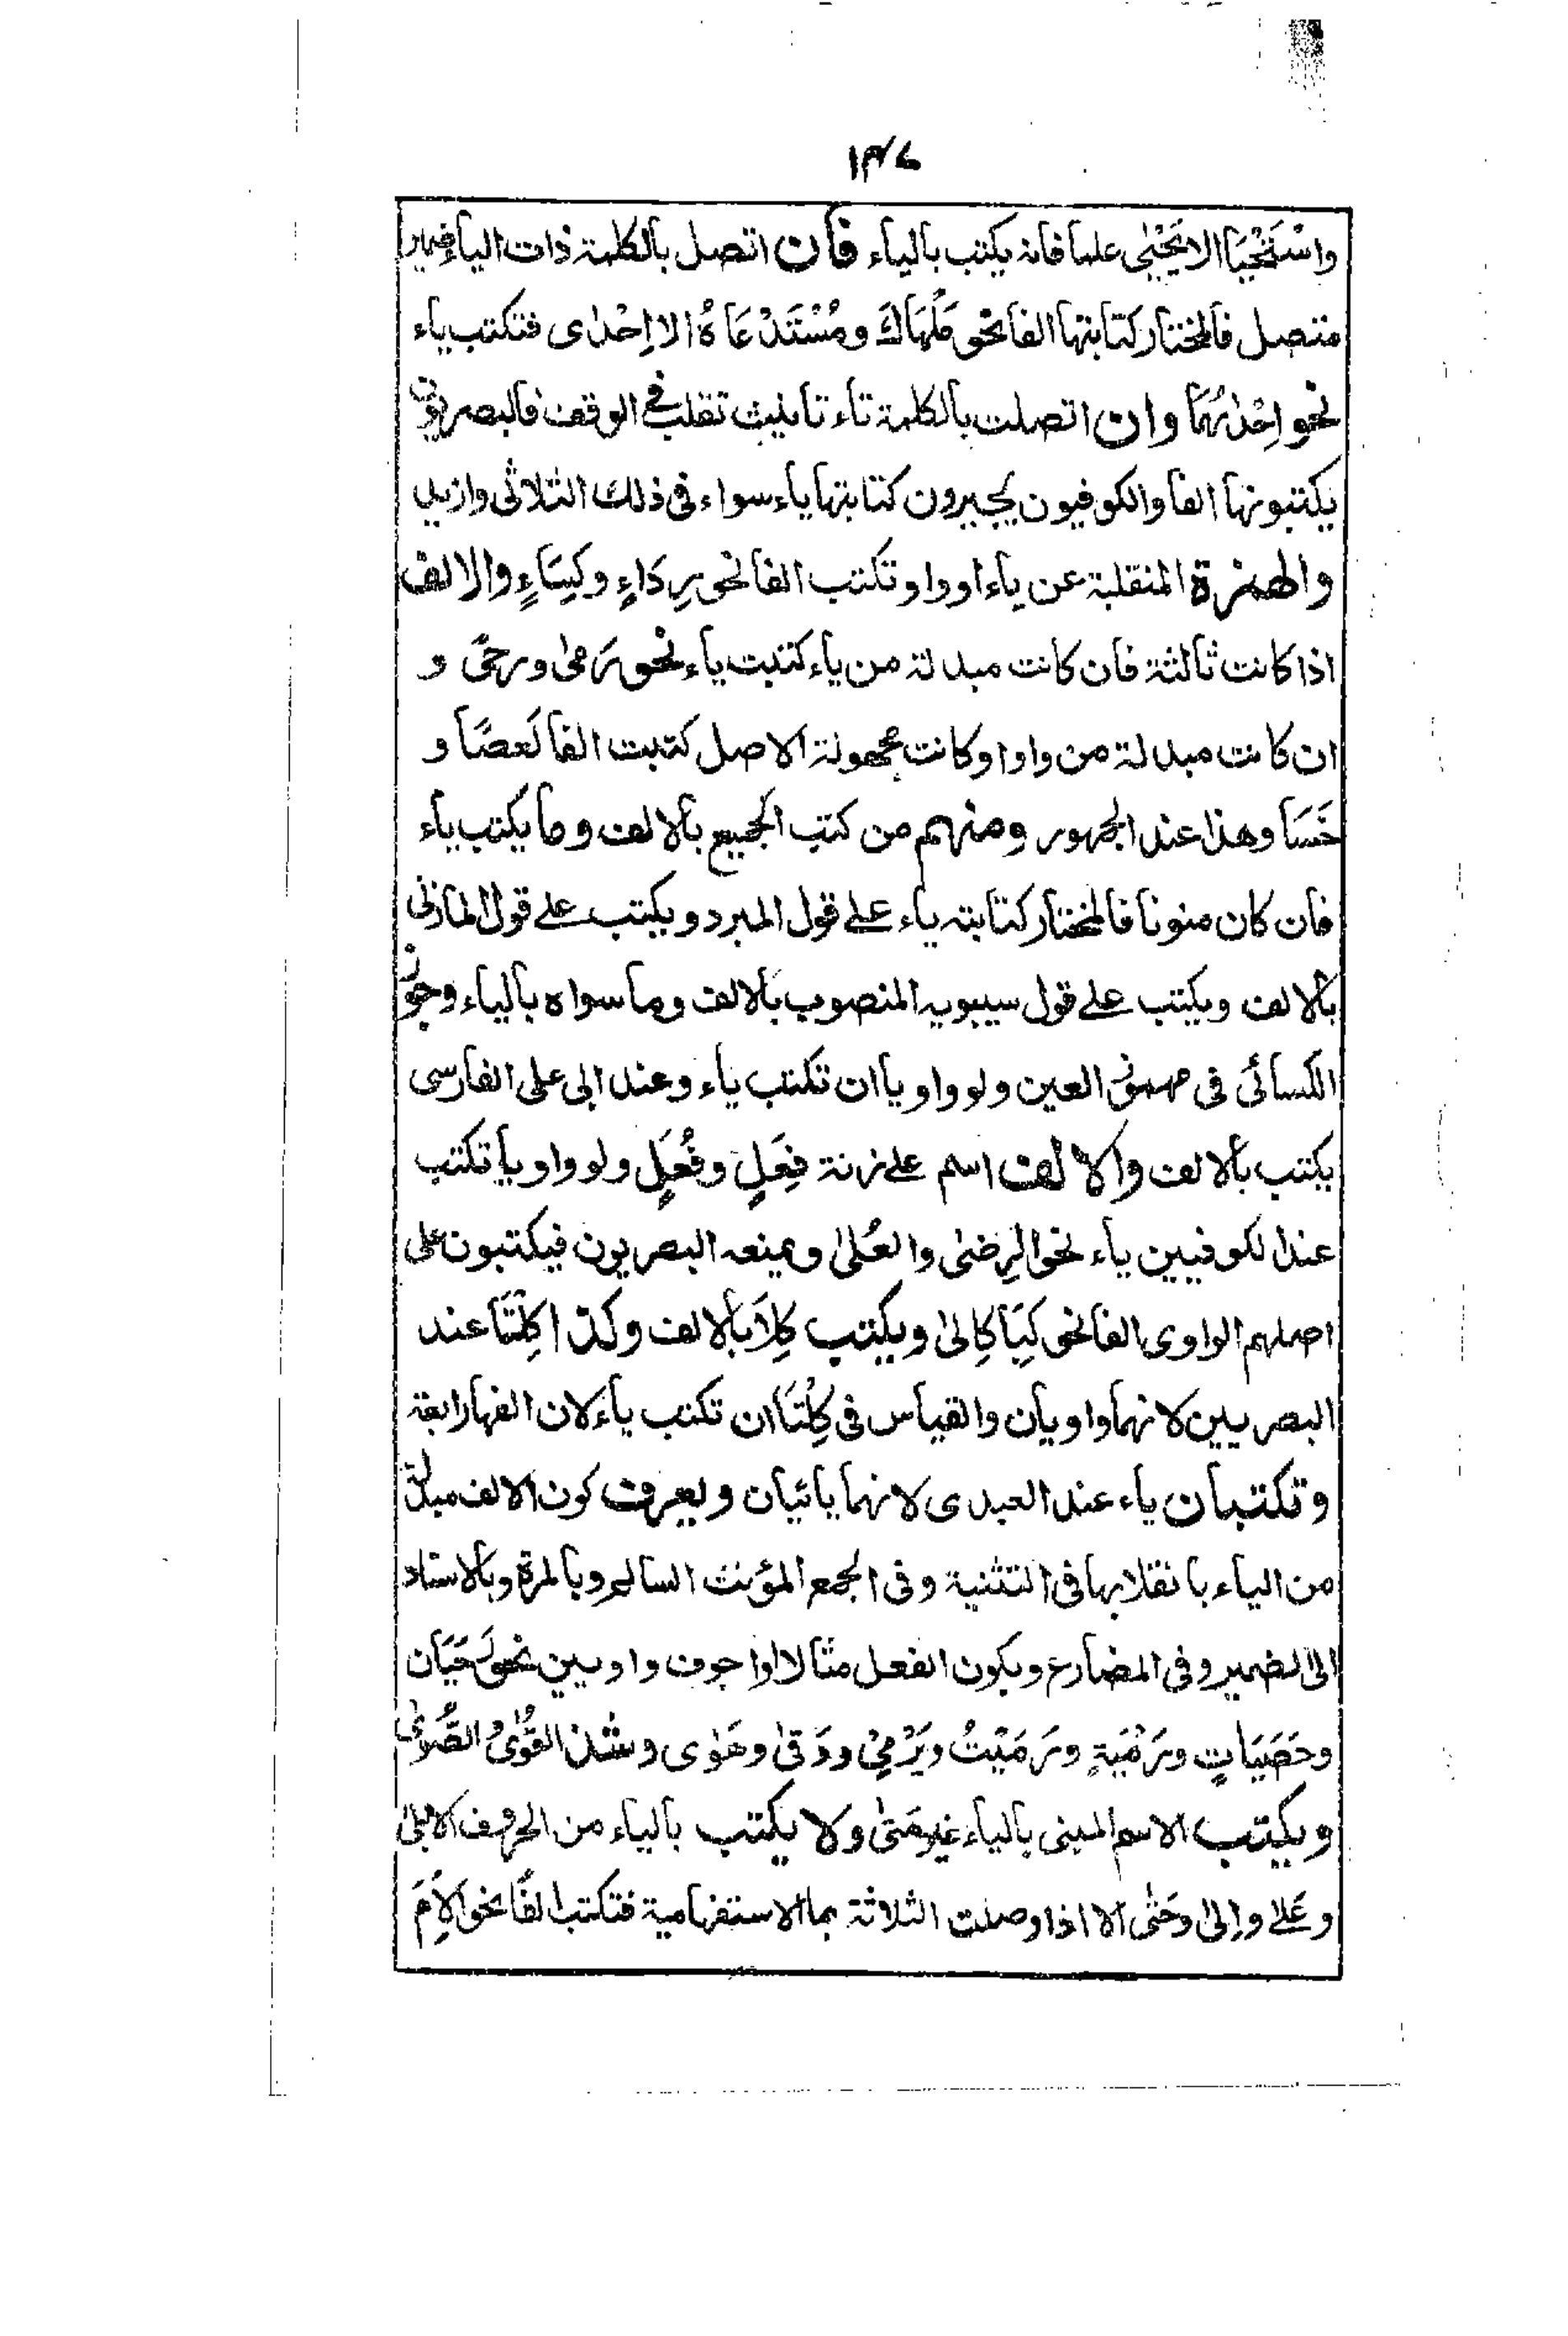 ١٣٧
واسْتَحْيَا الا يَحْيٰى علما فانه يكتب بالياء فان اتصل بالكلمة ذات الياء ضمير
متصل فالمختار كتابتها الفا نحو مَلْهَاكَ ومُسْتَدْعَاهُ الا اِحْدٰى فتكتب ياء
نحو اِحْدٰىهُمَا وان اتصلت بالكلمة تاء تانيث تقلب فى الوقف فالبصريون
يكتبونها الفا والكوفيون يجيزون كتابتها ياء سواء فى ذلك الثلاثى وازيد
والهمزة المنقلبة عن ياء او واو تكتب الفا نحو رِدَاءٍ وكِسَاءٍ والالف
اذا كانت ثالثة فان كانت مبدلة من ياء كتبت ياء نحو رَمٰى ورحًى و
ان كانت مبدلة من واو او كانت مجهولة الاصل كتبت الفا كعصًا و
خَسَا وهذا عند الجمهور ومنهم من كتب الجميع بالالف وما يكتب ياء
فان كان منونا فالمختار كتابته ياء على قول المبرد ويكتب على قول المازنى
بالالف ويكتب على قول سيبويه المنصوب بالالف وما سواه بالياء وجوز
الكسائى فى مهموز العين ولو واويا ان تكتب ياء وعند ابى على الفارسى
يكتب بالالف والالف اسم على زنة فِعَلٍ وفُعَلٍ ولو واويا تكتب
عند الكوفيين ياء نحو الرِضٰى والعُلٰى ويمنعه البصريون فيكتبون على
اصلهم الواوى الفا نحو كِبَا كِالىٰ ويكتب كِلَا بالالف وكذا كِلْتَا عند
البصريين لانهما واويان والقياس فى كِلْتَا ان تكتب ياء لان الفها رابعة
وتكتبان ياء عند العبدى لانهما يائيان ويعرف كون الالف مبدلة
من الياء بانقلابها فى التثنية وفى الجمع المؤنث السالم وبالمرة وبالاسناد
الى الضمير وفى المضارع وبكون الفعل مثالا او اجوف واويين نحو رَحَيَان
وحَصَيَاتٍ ورَمْيَةٍ ورَمَيْتُ ويَرْمِىْ ووَقٰى وهَوٰى وشذ القُوٰى والصُّوٰى
ويكتب الاسم المبنى بالياء غير مَتٰى ولا يكتب بالياء من الحروف الا بلٰى
وعَلٰى واِلٰى وحَتّٰى الا اذا وصلت الثلاثة بما الاستفهامية فتكتب الفًا نحو اِلَامَ